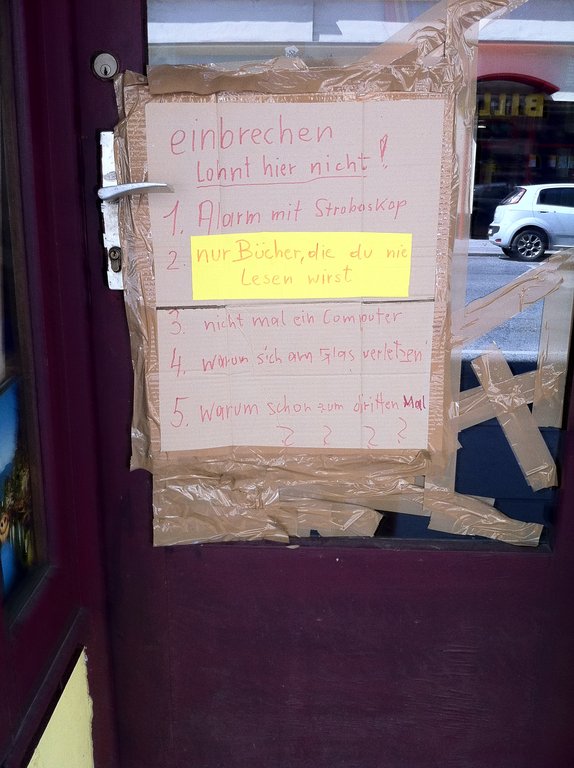 einbrechen
Lohnt hier nicht!
1. Alarm mit Stroboskop
2. nur Bücher, die du nie
Lesen wirst
3. nicht mal ein Computer
4. warum sich am Glas verletzen
5. warum schon zum dritten Mal
? ? ? ?
BILL